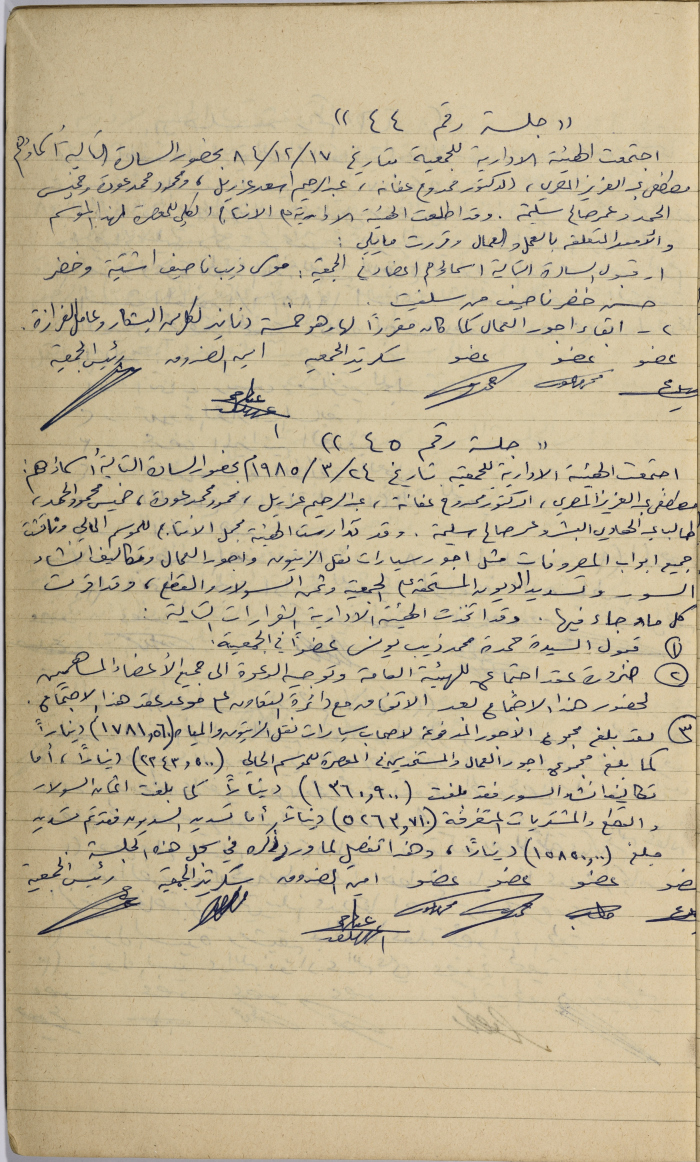 « جلسة رقم ٤٤ »
اجتمعت الهيئة الادارية للجمعية بتاريخ ٨٤/١٢/١٧ بحضور السادة التالية أسماؤهم
مصطفى عبد العزيز المصري، الدكتور ممدوح عفانه، عبد الرحيم اسعد عزريل، ومحمود محمد عودة وخميس
الحمد وعمر صالح سليمة. وقد اطلعت الهيئة الادارية على الانتاج الكلي للمعصرة لهذا الموسم
والأمور المتعلقة بالعمل والعمال وقررت مايلي :
١ـ قبول السادة التالية اسماؤهم اعضاء في الجمعية : موسى ذيب ناصيف اشتية وخضر
حسن خضر ناصيف من سلفيت .
٢ـ ابقاء اجور العمال كما كان مقرراً لها وهو خمسة دنانير لكل من البشكار وعامل الفرازة.
عضو عضو عضو سكرتير الجمعية امين الصندوق رئيس الجمعية
« جلسة رقم ٤٥ »
اجتمعت الهيئة الادارية للجمعية بتاريخ ١٩٨٥/٣/٢٤م بحضور السادة التالية أسماؤهم:
مصطفى عبد العزيز المصري، الدكتور ممدوح عفانة، عبد الرحيم عزريل، محمود محمد عودة، خميس محمود الحمد،
طالب عبد الهادي البشر وعمر صالح سليمة. وقد تدارست الهيئة مجمل الانتاج للموسم الحالي وناقشت
جميع ابواب المصروفات مثل اجور سيارات نقل الزيتون واجور العمال وتكاليف انشاء
السور وتسديد الديون المستحقة على الجمعية وثمن السولار والقطع، وقد اقرت
كل ما جاء فيها. وقد اتخذت الهيئة الادارية القرارات التالية :
① قبول السيدة حمدة محمد ذيب يونس عضواً في الجمعية.
② ضرورة عقد اجتماع للهيئة العامة وتوجيه الدعوة الى جميع الأعضاء المساهمين
لحضور هذا الاجتماع بعد الاتفاق مع دائرة التعاون على موعد عقد هذا الاجتماع.
③ لقد بلغ مجموع الأجور المدفوعة لاصحاب سيارات نقل الزيتون والمياه (١٧٨١,٥٦٠) ديناراً
كما بلغ مجموع اجور العمال والمستخدمين في المعصرة للموسم الحالي (٢٢٤٣,٥٠٠) ديناراً، أما
تكاليف انشاء السور فقد بلغت (١٣٦٠,٩٠٠) ديناراً كما بلغت اثمان السولار
والقطع والمشتريات المتفرقة (٥٢٦٣,٧١٠) ديناراً أما تسديد الديون فقد تم تسديد
مبلغ (١٥٨٥٠,٠٠) ديناراً، وهذا تفصيل لما ورد ذكره في سجل هذه الجلسة
عضو عضو عضو عضو امين الصندوق سكرتير الجمعية رئيس الجمعية